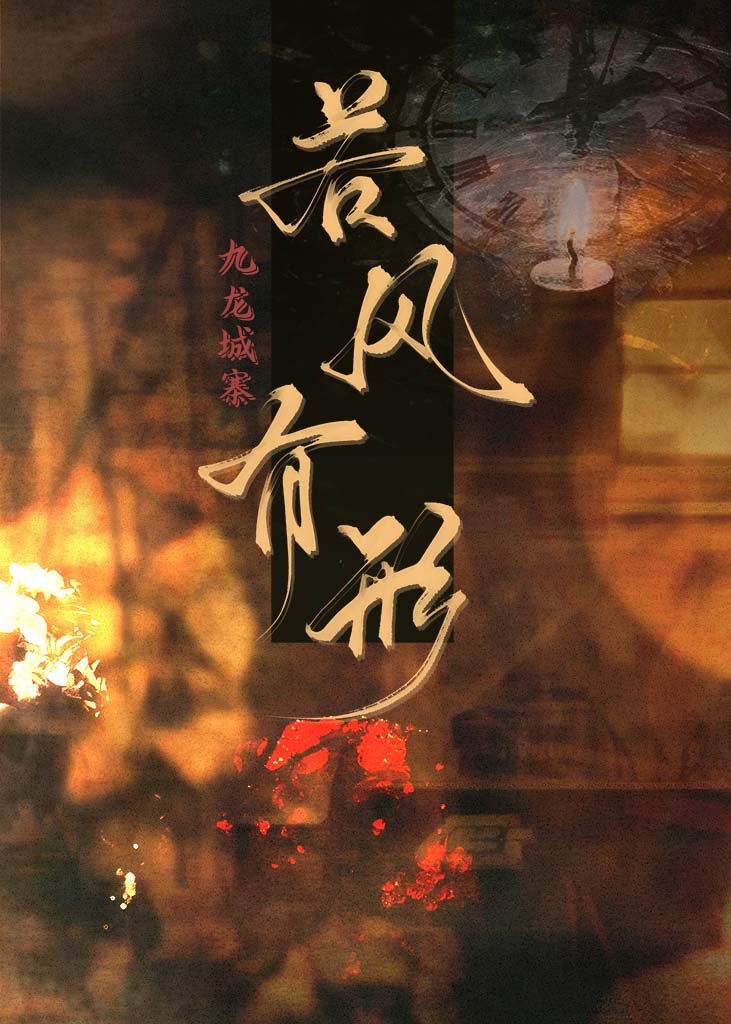 若风有形
九龙城寨